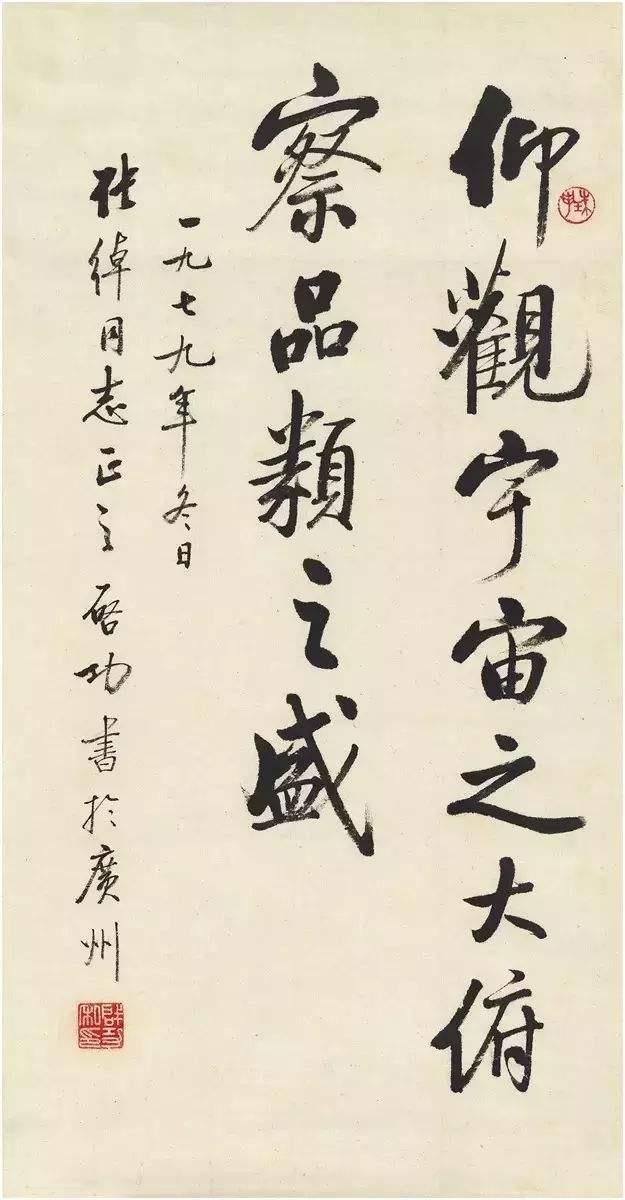 仰觀宇宙之大俯
察品類之盛
一九七九年冬日
張倬同志正之啓功書於廣州